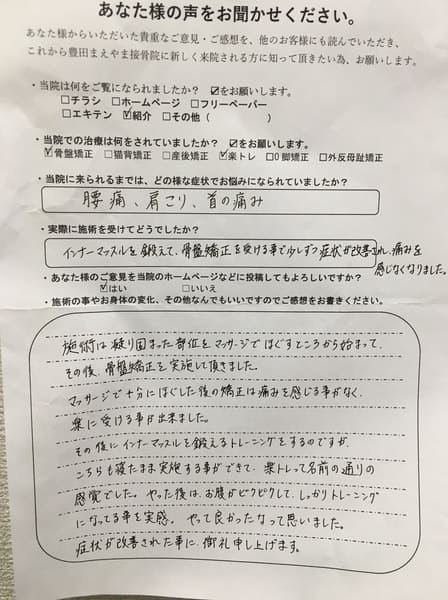 あなた様の声をお聞かせください。
あなた様からいただいた貴重なご意見・ご感想を、他のお客様にも読んでいただき、
これから豊田まえやま接骨院に新しく来院される方に知って頂きたい為、お願いします。
・当院は何をご覧になりなれましたか? ☑をお願いします。
☐チラシ ☐ホームページ ☐フリーペーパー
☐エキテン ☑紹介 ☐その他( )
・当院での治療は何をされていましたか? ☑をお願いします。
☑骨盤矯正 ☐猫背矯正 ☐産後矯正 ☑楽トレ ☐O脚矯正 ☐外反母趾矯正
・当院に来られるまでは、どの様な症状でお悩みになられていましたか?
腰痛、肩こり、首の痛み
・実際に施術を受けてどうでしたか?
インナーマッスルを鍛えて、骨盤矯正を受ける事で少しずつ症状が改善され、痛みを
感じなくなりました。
・あなた様のご意見を当院のホームページなどに投稿してもよろしいですか?
☑はい ☐いいえ
・施術の事やお身体の変化、その他なんでもいいですのでご感想をお書きください。
施術は凝り固まった部位をマッサージでほぐすところから始まって、
その後、骨盤矯正を実施して頂きました。
マッサージで十分にほぐした後の矯正は痛みを感じる事がなく、
楽に受ける事が出来ました。
その後にインナーマッスルを鍛えるトレーニングをするのですが、
こちらも寝たまま実施する事ができて、楽トレって名前の通りの
感覚でした。やった後は、お腹がピクピクして、しっかりトレーニング
になってる事を実感。やって良かったなって思いました。
症状が改善された事に、御礼申し上げます。